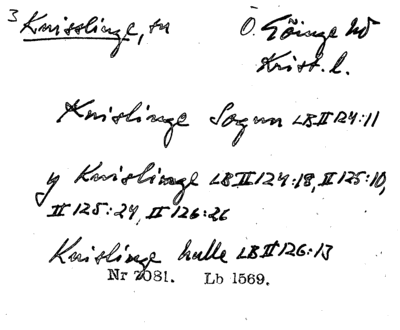 3 Knisslinge, sn Ö. Göinge hd
Krist. l.
Knislinge Sognn LB II 124:11
y Knislinge LB II 124:18, II 125:10,
II 125:24, II 126:26
Knislinge halle LB II 126:13
Nr 2081. Lb 1569.